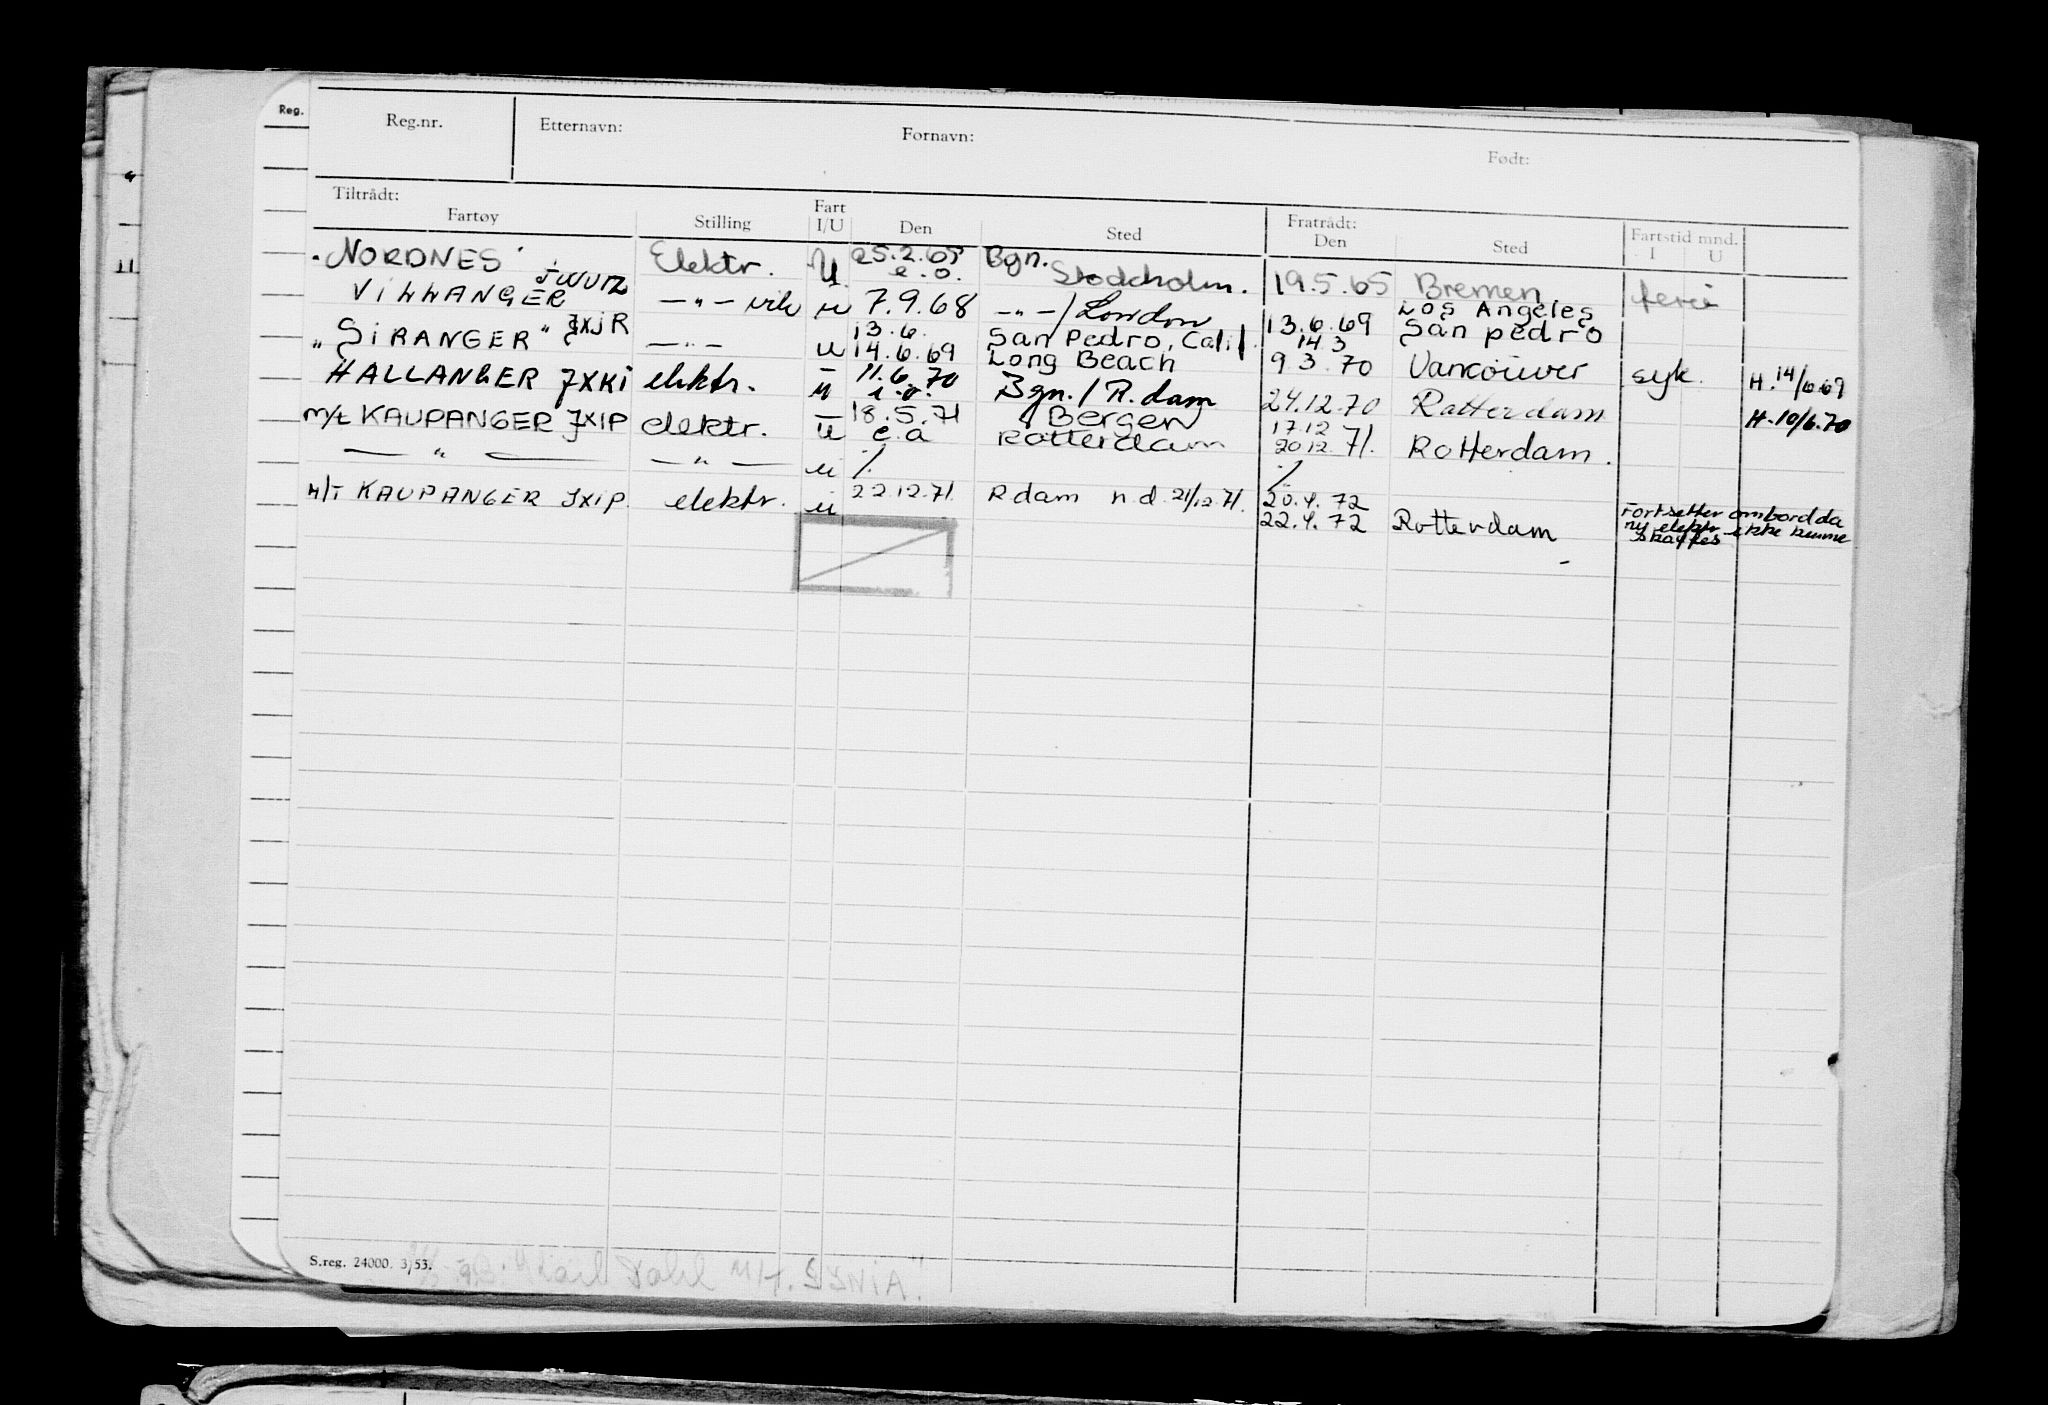 Reg.
Reg.nr. Etternavn: Fornavn: Født:
Tiltrådt: Fratrådt:
Fartøy Stilling Fart I/U Den Sted Den Sted Fartstid mnd. I U
"NORDNES" Elektr. U 25.2.65 Bgn. 19.5.65 Bremen ferie
e.o. Stockholm.
VILLANGER JWUN — " — vik u 7.9.68 — " — / London 13.6.69 Los Angeles
San pedro
"SIRANGER" JXJR — " — u 13.6. San Pedro, Calif. 14.3
14.6.69 Long Beach 9.3.70 Vancouver syk. H. 14/6.69
HALLANGER JXKI elektr. u 11.6.70 Bgn./R.dam 24.12.70 Rotterdam H. 10/6.70
e.o.
M/t KAUPANGER JXIP elektr. u 18.5.71 Bergen 17.12
e.a Rotterdam 20.12.71. Rotterdam.
— " — — " — u % %
M/T KAUPANGER JXIP. elektr. u 22.12.71. Rdam n.d. 21/12.71. 20.4.72
22.4.72 Rotterdam Fortsetter ombord da
ny elektr ikke kunne
skaffes
S.reg. 24000. 3/53.
Dahl M/T.